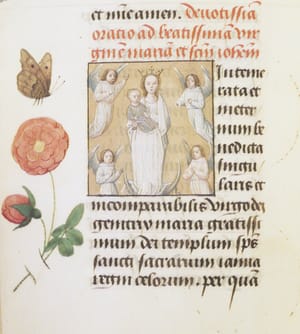 et nūc amen. Deuotissia
oratio ad beatissimā vir
ginē mariā et scm̄ iohem
Inteme
rata et
ineter
num be
nedicta
singu
laris et
incomparabilis virgo dei
genetrix maria gratissi
mum dei templum sp̄s
sancti sacrarium ianua
regni celorum. per quā